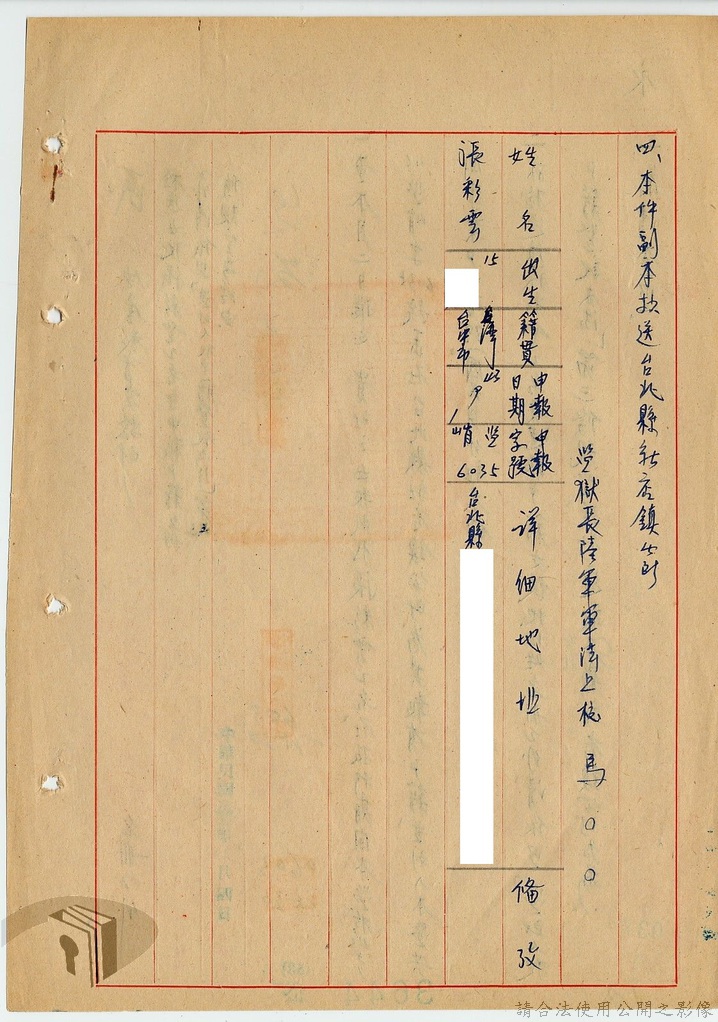 四、本件副本抄送台北縣新店鎮公所
監獄長陸軍軍法上校 馬○○
姓名
出生
籍貫
申報日期
申報字號
詳細地址
備攷
張彩雲
15
臺灣
台中市
監
6035
台北縣
請合法使用公開之影像